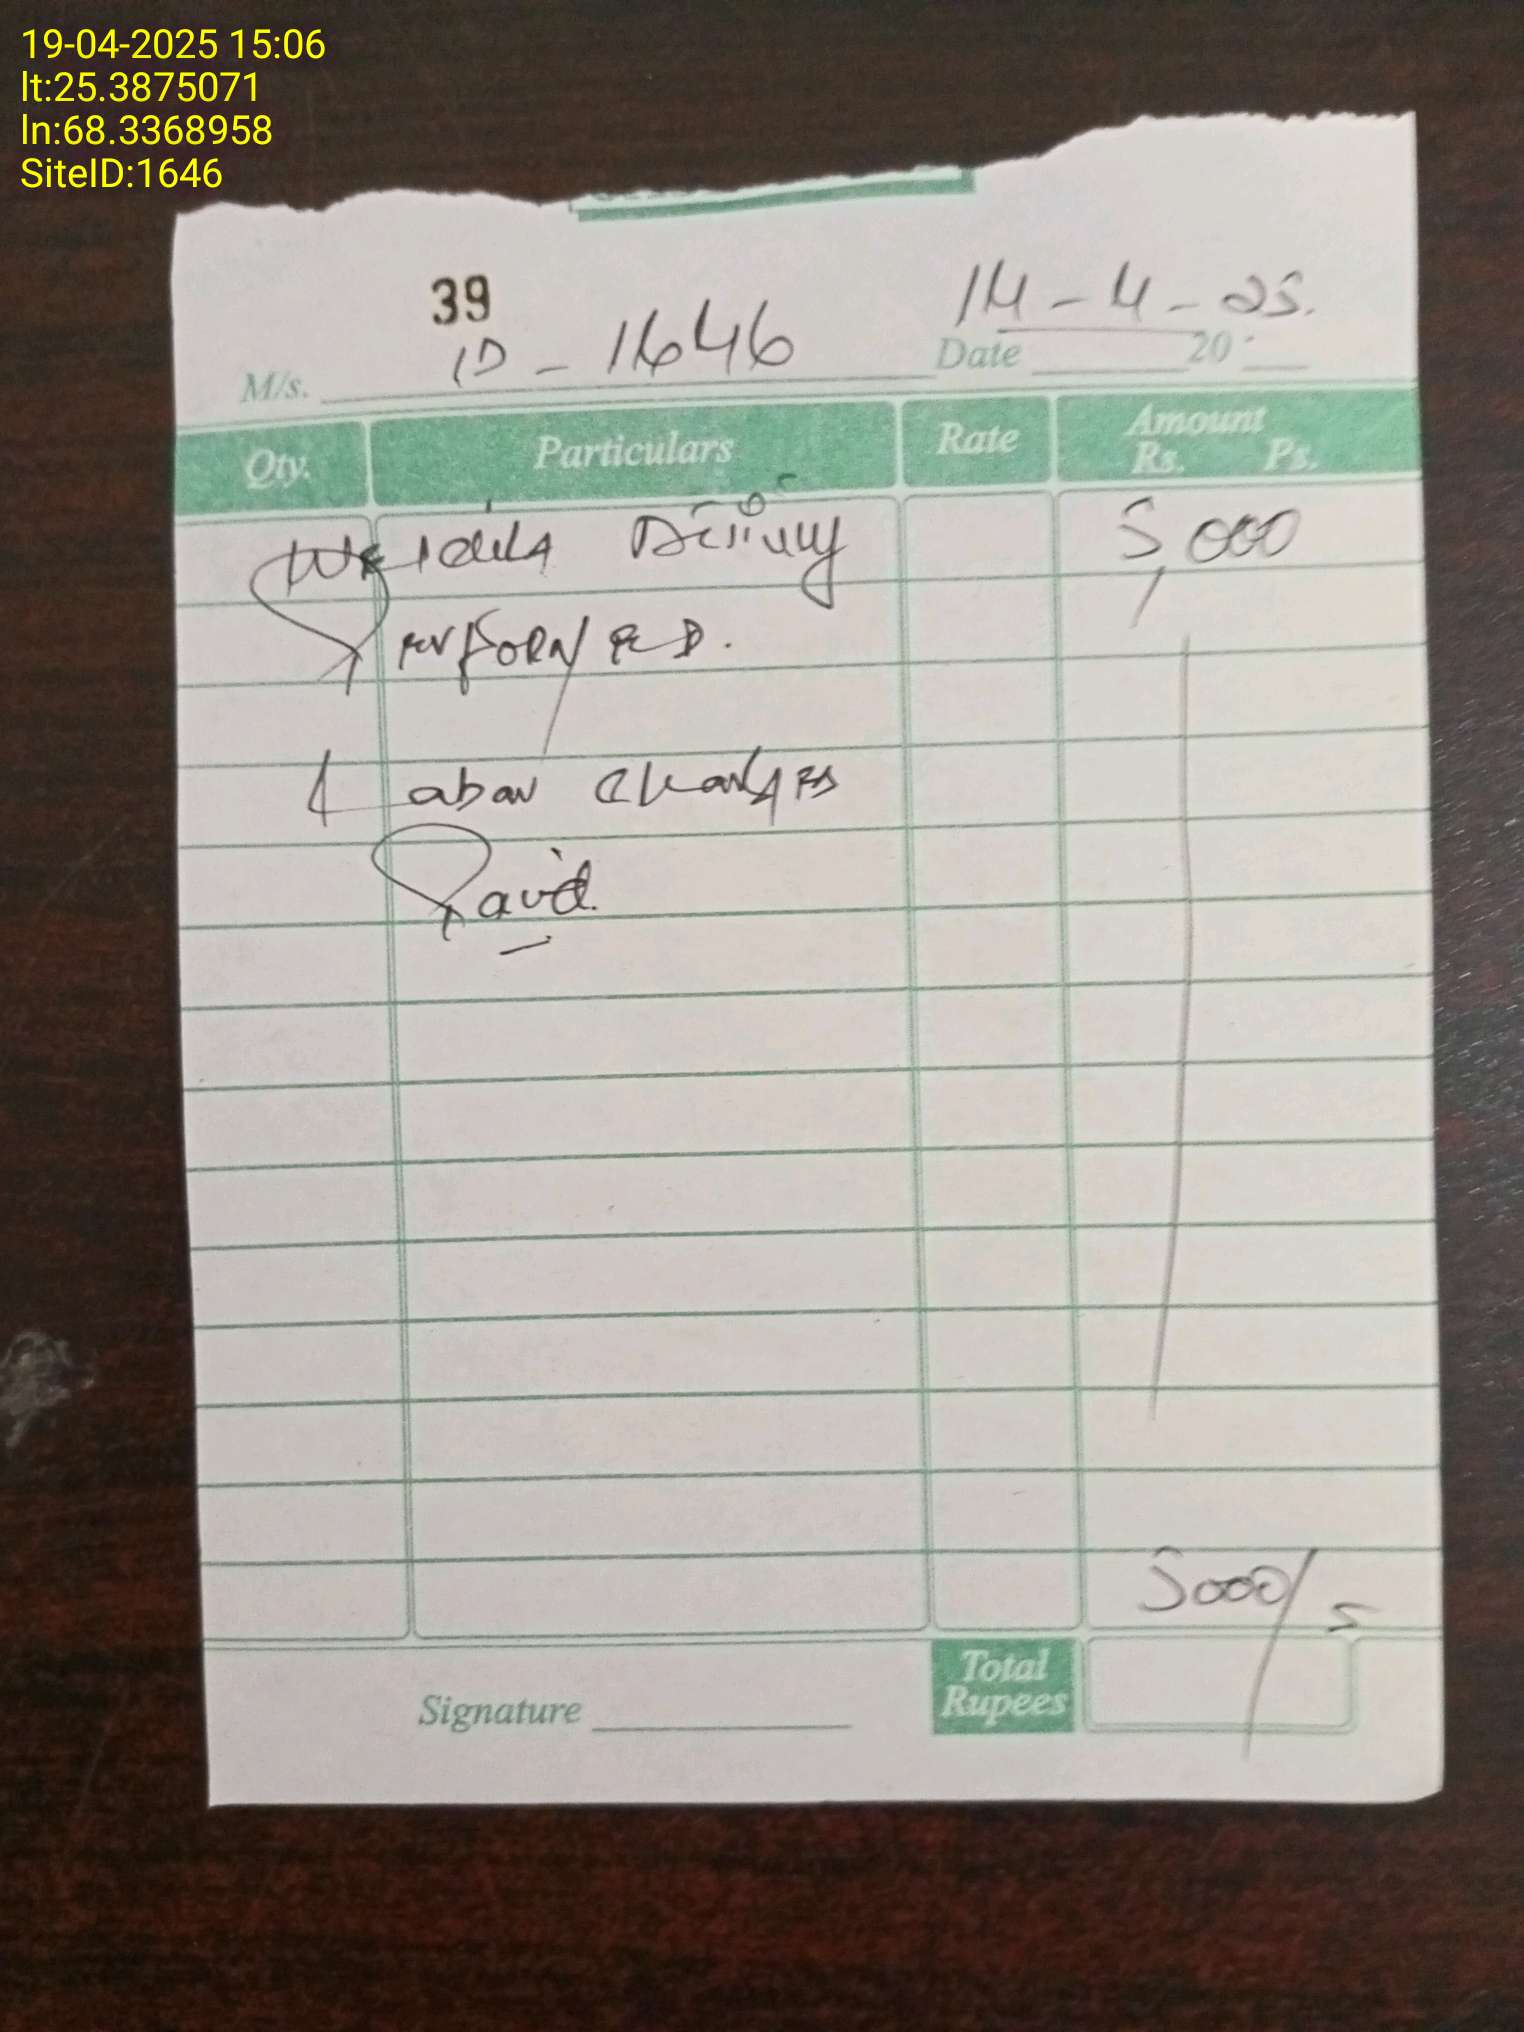 19-04-2025 15:06
lt:25.3875071
ln:68.3368958
SiteID:1646
39
14-4-25.
M/s. ID-1646 Date 20
Qty. Particulars Rate Amount
Rs. Ps.
5,000
Performed.
Labour Charges
Paid.
5000/=
Total
Rupees
Signature